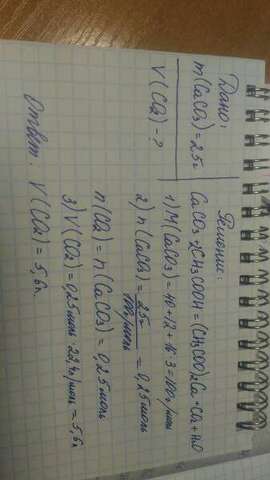 Дано:
m(CaCO3)=25г
V(CO2)-?
Решение:
CaCO3+2CH3COOH=(CH3COO)2Ca+CO2+H2O
1) M(CaCO3)=40+12+16·3=100г/моль
2) n(CaCO3)=25г/100г/моль=0,25моль
n(CO2)=n(CaCO3)=0,25моль
3) V(CO2)=0,25моль·22,4л/моль=5,6л
Ответ: V(CO2)=5,6л